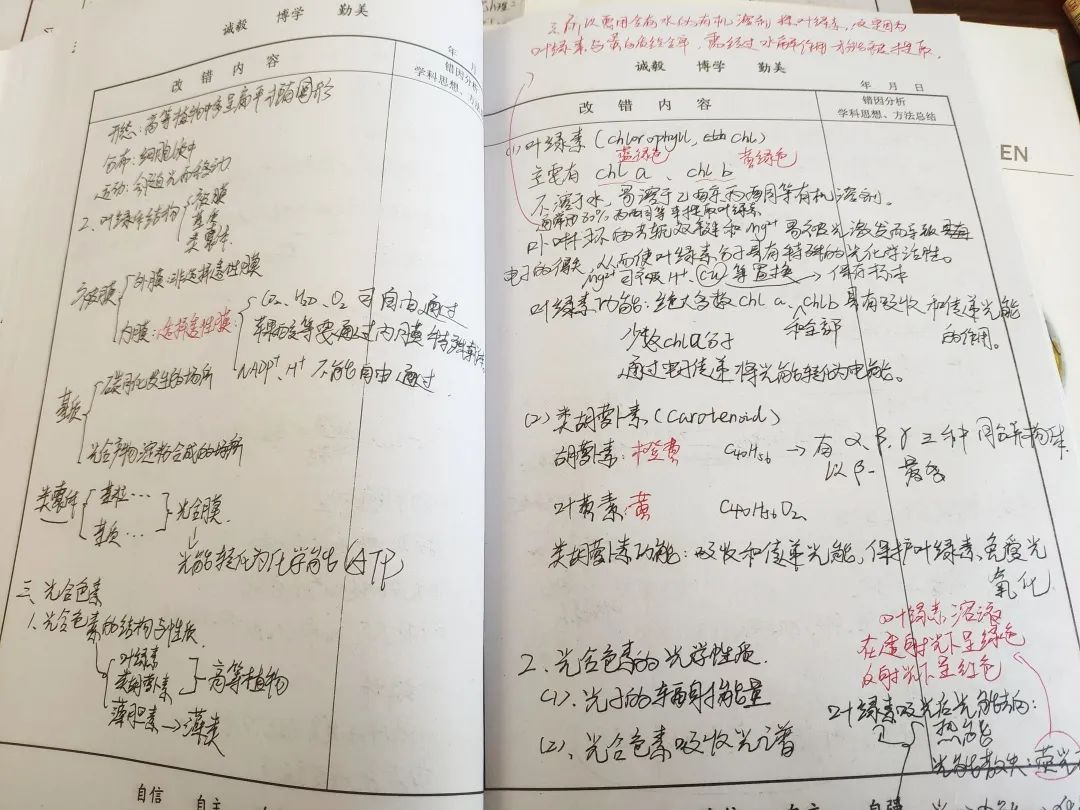 诚毅 博学 勤美
年 月
改 错 内 容
错因分析
学科思想、方法
形态:高等植物中多呈扁平椭圆形
分布:细胞质中
运动:会随光而移动
2.叶绿体结构
被膜
基质
类囊体
被膜
外膜:非选择透性膜
内膜:选择透性膜:
CO₂、H₂O、O₂ 可自由通过
蔗糖等需要通过内膜
NADP⁺、H⁺ 不能自由通过
基质
碳同化发生的场所
光合产物淀粉合成的场所
类囊体
基粒…
基质…
光合膜
光能转化为化学能(ATP)
三、光合色素
1、光合色素的结构与性质
叶绿素
类胡萝卜素
高等植物
藻胆素→藻类
自信 自主
所以要用含有水的有机溶剂提叶绿素,这是因为
叶绿素与蛋白质结合牢,需经过水解作用才能被提取.
诚毅 博学 勤美
年 月 日
改 错 内 容
错因分析
学科思想、方法总结
(1)叶绿素(chlorophyll, chl)
蓝绿色 黄绿色
主要有 chl a 、 chl b
不溶于水,易溶于乙醇、丙酮等有机溶剂。
通常用80%丙酮等来提取叶绿素
卟啉环的共轭双键和Mg²⁺易被光激发而导致
电子的得失,从而使叶绿素分子具有特殊的光化学活性。
Mg²⁺可被H⁺、Cu等置换→保存标本
叶绿素功能:绝大多数chl a、和全部chl b具有吸收和传递光能的作用。
少数chl a分子
通过电子传递将光能转化为电能。
(2)类胡萝卜素(carotenoid)
胡萝卜素:橙黄 C40H56 → 有α、β、γ三种同分异构体.
以β-最多
叶黄素:黄 C40H56O2
类胡萝卜素功能:吸收和传递光能,保护叶绿素,免受光
氧化
2.光合色素的光学性质.
(1).光子的辐射能量
(2).光合色素吸收光谱
叶绿素溶液
在透射光下呈绿色
反射光下呈红色
叶绿素吸光后光能转为:
热能
光能散失:荧光
EN